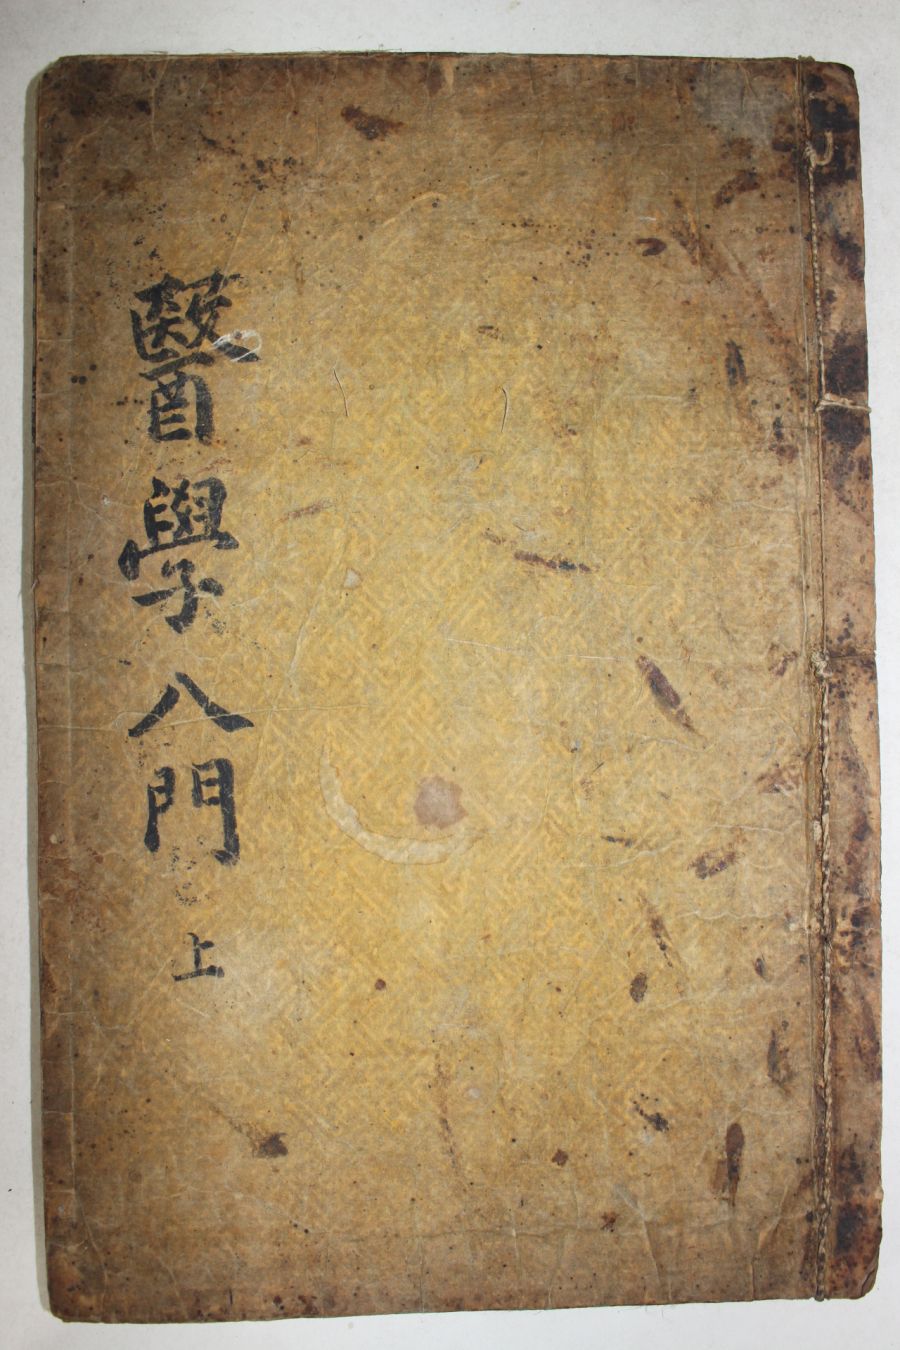 醫學八門 上